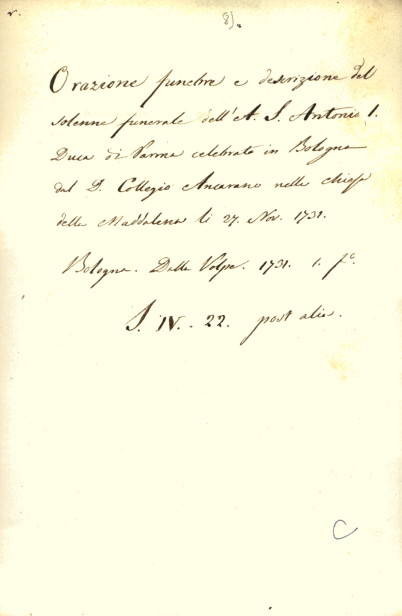 v.
8).
Orazione funebre e descrizione del
solenne funerale dell'A. S. Antonio 1.
Duca di Parma celebrato in Bologna
dal D. Collegio Ancarano nella chiesa
della Maddalena li 27. Nov. 1731.
Bologna. Dalla Volpe. 1731. 1. f.º
S. IV. . 22. post alia.
C